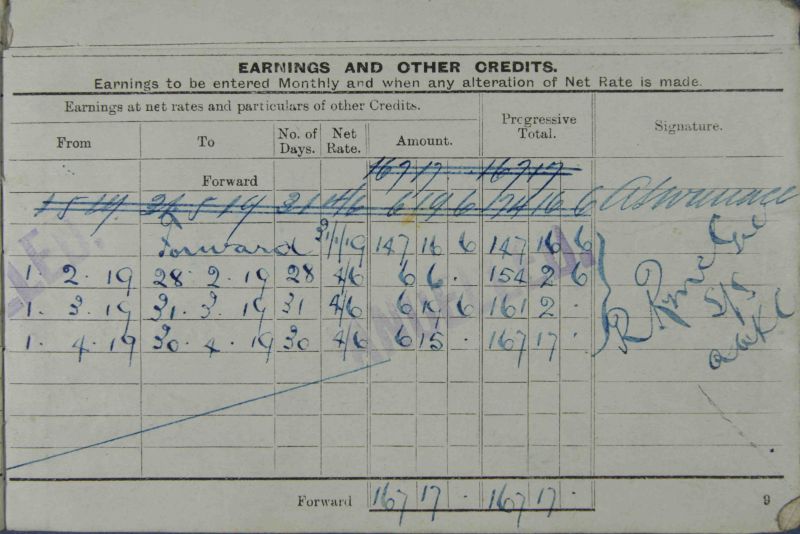 EARNINGS AND OTHER CREDITS.
Earnings to be entered Monthly and when any alteration of Net Rate is made.
Earnings at net rates and particulars of other Credits.
From To No. of Days. Net Rate. Amount. Progressive Total. Signature.
Forward 167 17 . 167 17
1 5 19. 31 5 19 31 4/6 6 19 6 174 16 6
Forward 31/1/19 147 16 6 147 16 6
1. 2. 19 28. 2. 19 28 4/6 6 6 . 154 2 6
1. 3. 19 31. 3. 19 31 4/6 6 19 6 161 2 .
1. 4. 19 30. 4. 19 30 4/6 6 15 . 167 17 .
Forward 167 17 . 167 17 .
9